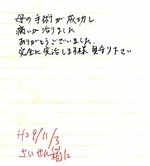 母の手術が成功し
病いが治りました
ありがとうございました。
完全に完治します様 見守り下さい
H29/11/3
さいせん箱に